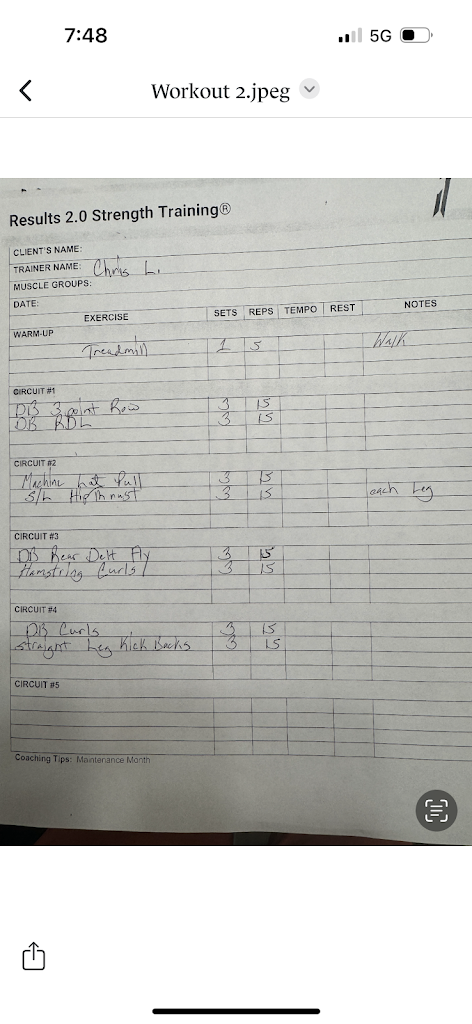 7:48
5G
Workout 2.jpeg
Results 2.0 Strength Training®
CLIENT'S NAME:
TRAINER NAME: Chris L.
MUSCLE GROUPS:
DATE:
EXERCISE SETS REPS TEMPO REST NOTES
WARM-UP
Treadmill 1 5 Walk
CIRCUIT #1
DB 3 point Row 3 15
DB RDL 3 15
CIRCUIT #2
Machine Lat Pull 3 15
S/L Hip Thrust 3 15 each Leg
CIRCUIT #3
DB Rear Delt Fly 3 15
Hamstring Curls 3 15
CIRCUIT #4
DB Curls 3 15
straight Leg Kick Backs 3 15
CIRCUIT #5
Coaching Tips: Maintenance Month